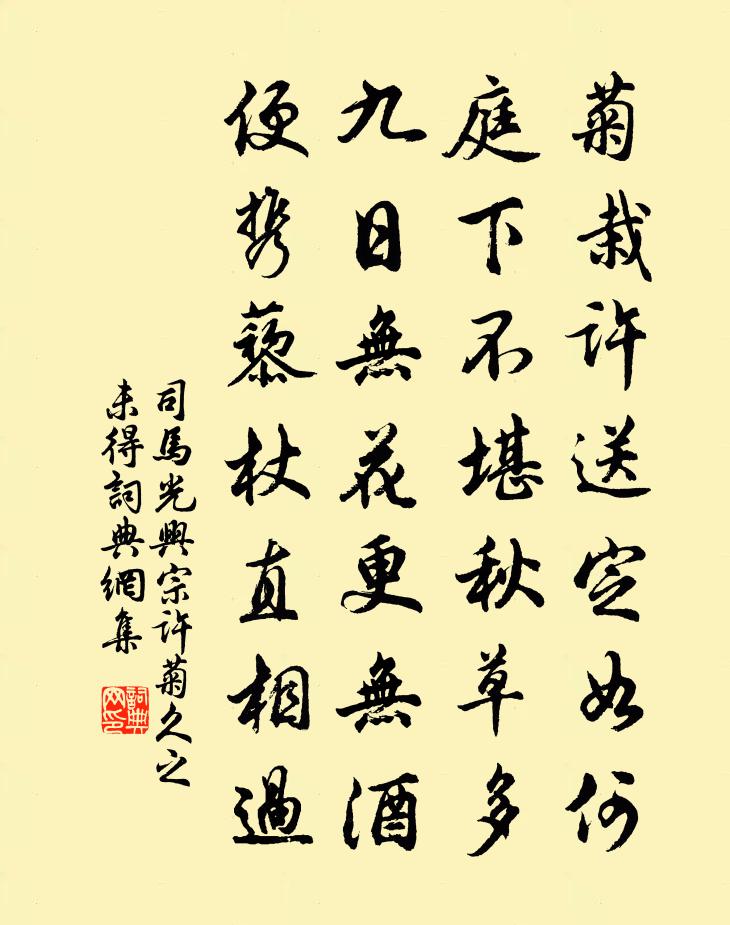 菊栽許送定如何
庭下不堪秋草多
九日無花更無酒
便携藜杖直相過
司馬光興宗許菊久之
未得詞典網集
詞典
网印